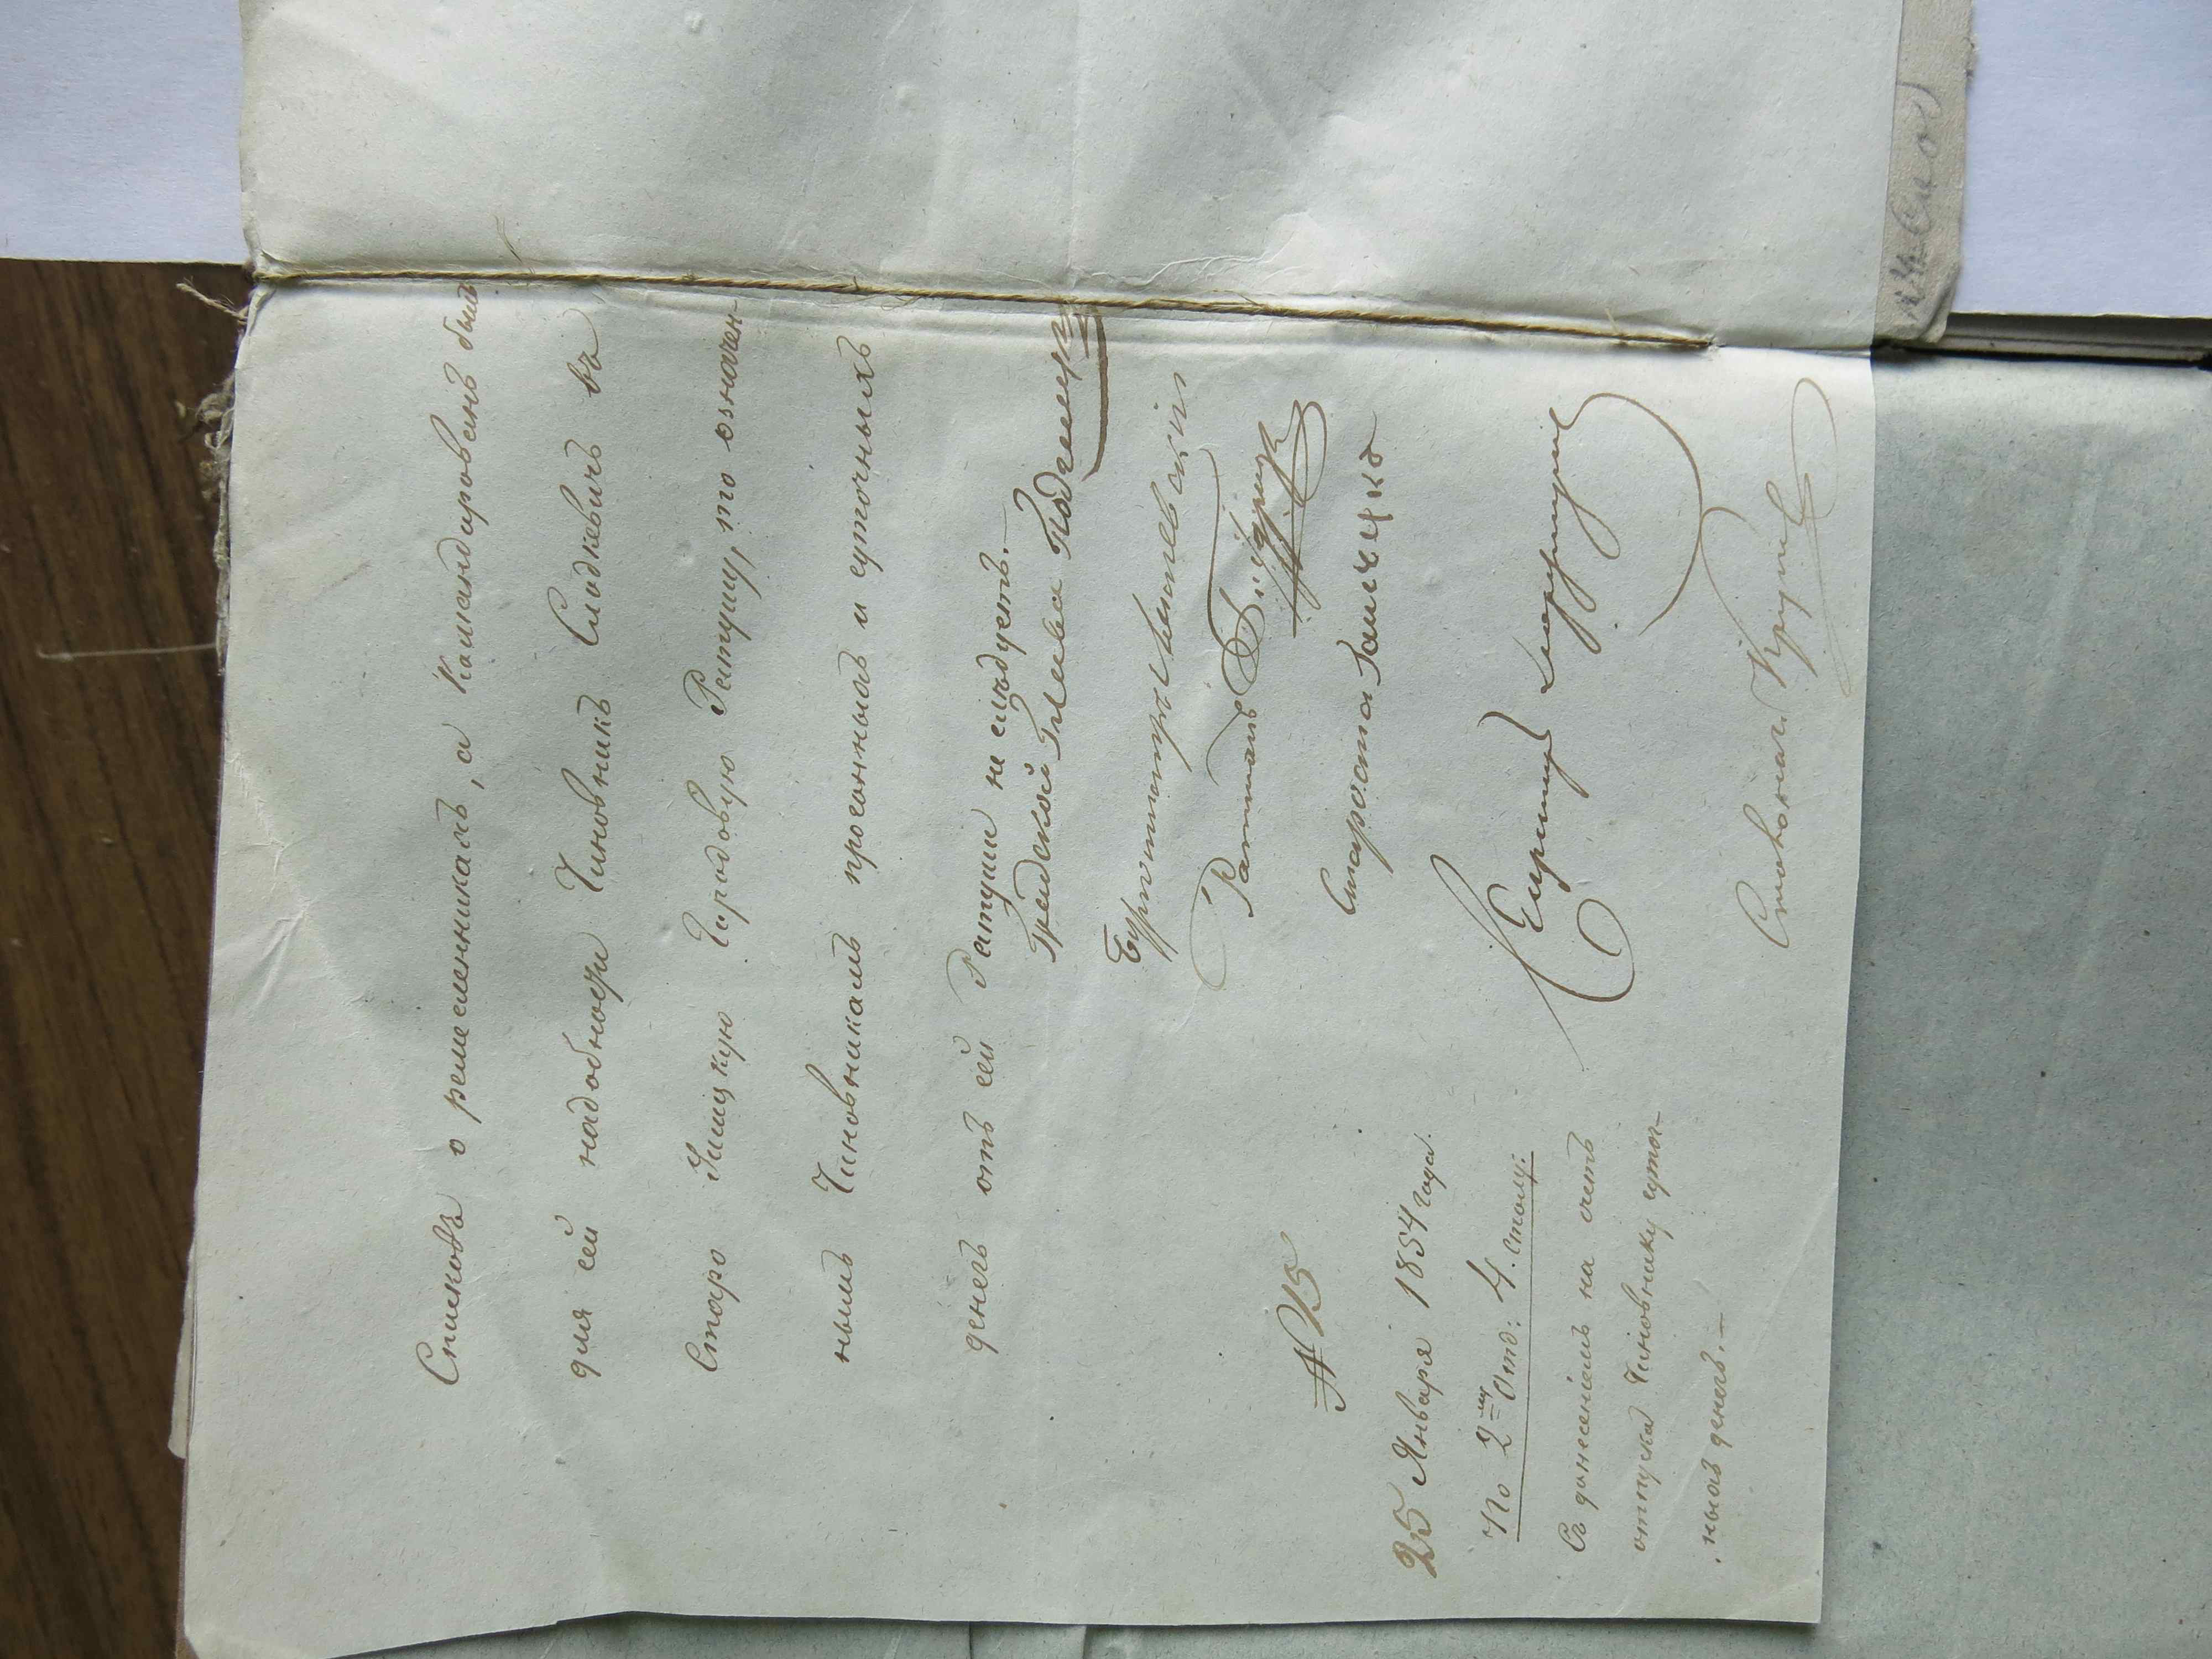 Списковъ о ремесленникахъ, а Командированъ былъ
для сей надобности Чиновникъ Сладкевичъ въ
Старо Ушицкую Городовую Ратушу, то означен-
нымъ Чиновникамъ прогонныхъ и суточныхъ
денегъ отъ сей Ратуши не слѣдуетъ.—
Градской Глава
Бургомистръ
Ратманъ
Староста
№ 75
25 Января 1854 года.
По 2му Отд: 4. столу:
Съ донесеніемъ на счетъ
отпуска Чиновнику суточ-
ныхъ денегъ.—